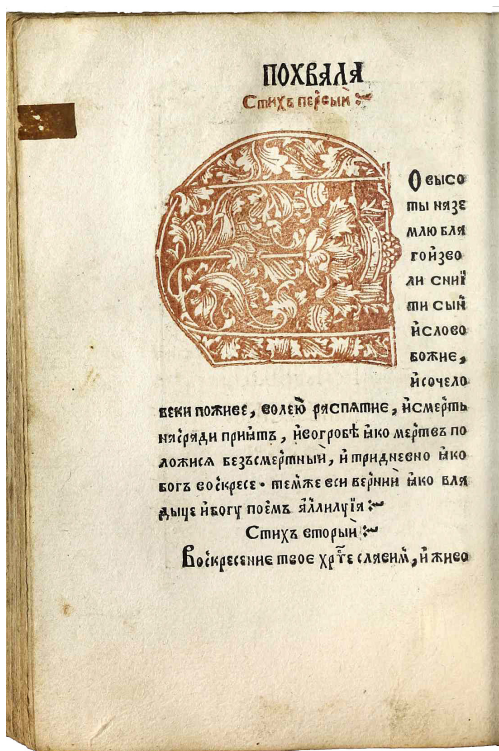 ПОХВАЛА
Стихъ первый
О высо
ты на зе
млю бла
гоизво
ли снии
ти сый
и слово
божие,
и со чело
веки поживе, волею распятие, и смерть
нас ради приятъ, и во гробѣ яко мертвъ по
ложися безъсмертный, и тридневно яко
богъ воскресе. темже вси вернии яко вла
дыце и богу поемъ аллилуїя
Стихъ вторый
Воскресение твое хрт҃е славим, и живо